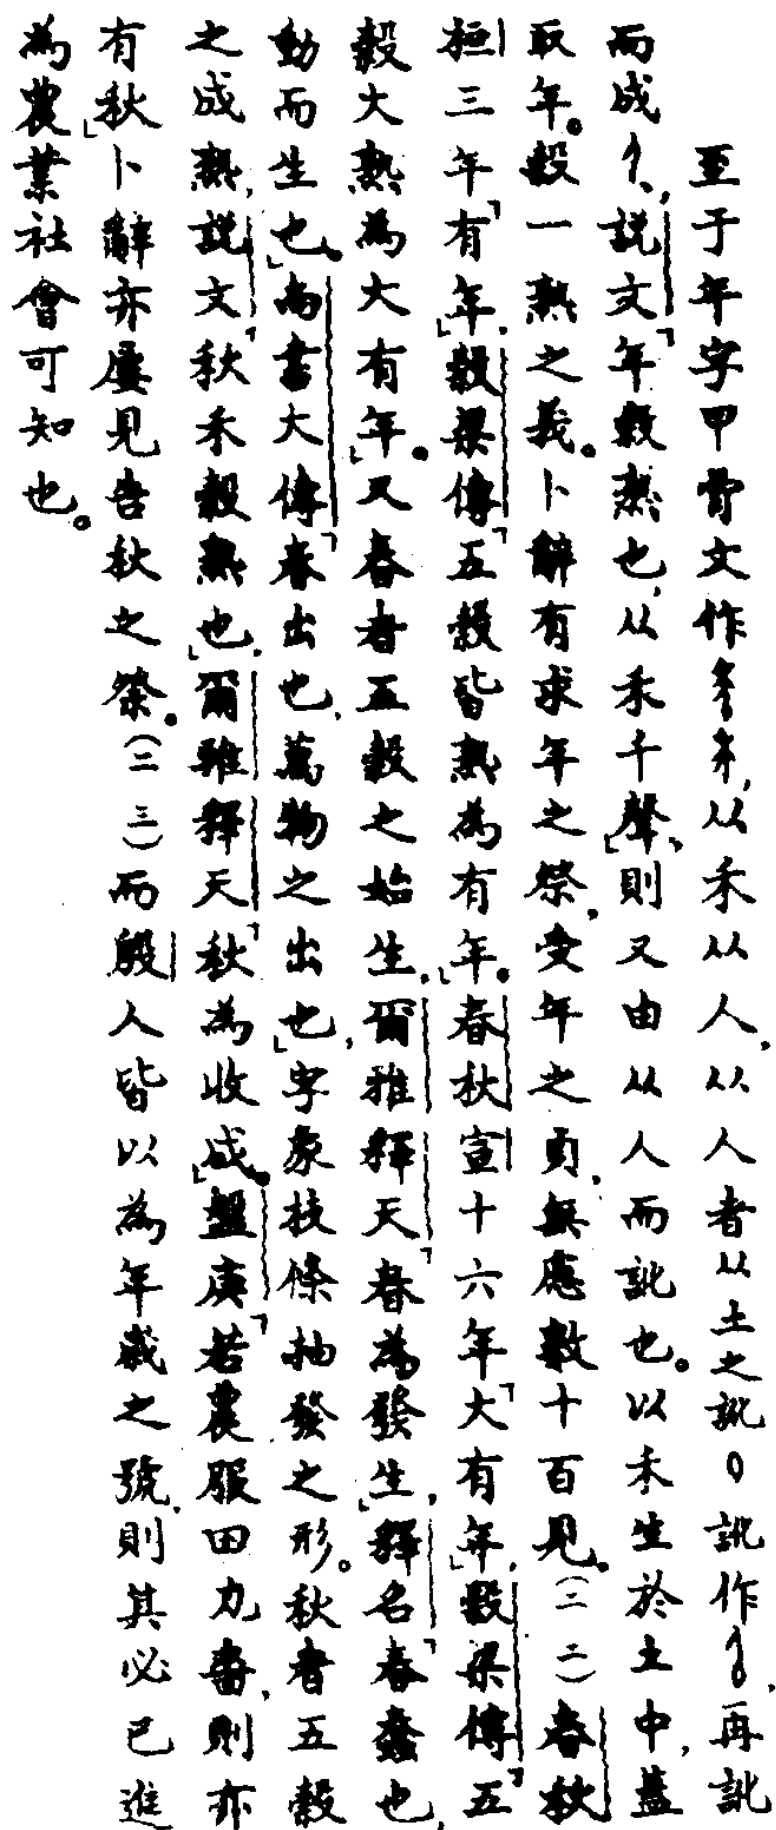 至于年字甲骨文作，从禾从人，从人者从土之訛，訛作，再訛
而成，說文「年穀熟也，从禾千聲」，則又由从人而訛也。以禾生於土中，蓋
取年。穀一熟之義。卜辭有求年之祭，受年之貞，無應數十百見。(二二)春秋
桓三年「有年」，穀梁傳「五穀皆熟為有年」。春秋宣十六年「大有年」，穀梁傳「五
穀大熟為大有年」。又春者五穀之始生，爾雅釋天「春為發生」，釋名「春蠢也，
動而生也」。尚書大傳「春出也，萬物之出也」，字象枝條抽發之形。秋者五穀
之成熟，說文「秋禾穀熟也」，爾雅釋天「秋為收成」。盤庚「若農服田力嗇，則亦
有秋」卜辭亦屢見告秋之祭。(二三)而殷人皆以為年歲之號，則其必已進
為農業社會可知也。